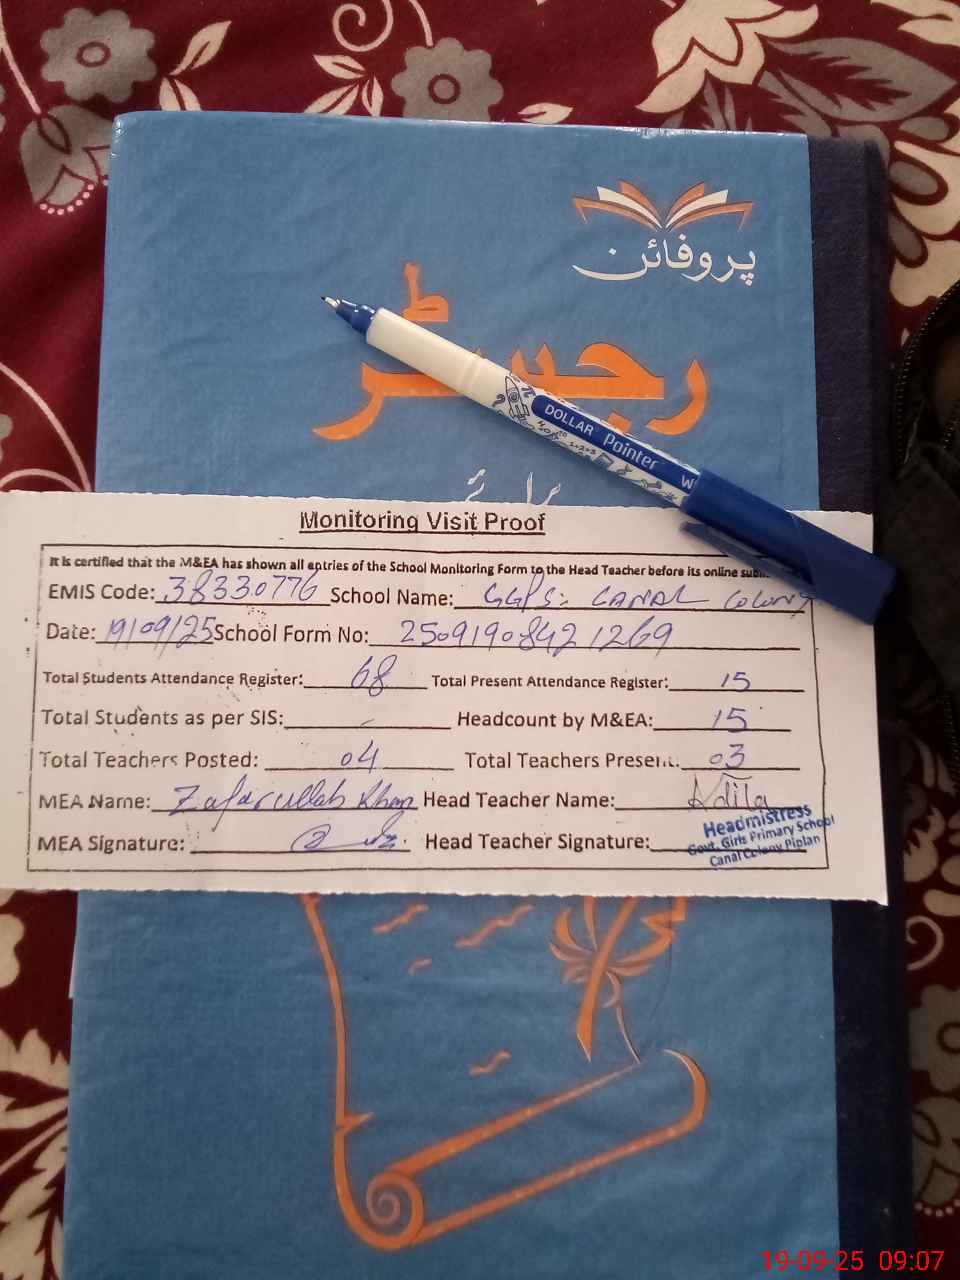 پروفائن
رجسٹر
برائے
DOLLAR Pointer
Monitoring Visit Proof
It is certified that the M&EA has shown all entries of the School Monitoring Form to the Head Teacher before its online
EMIS Code: 38330776 School Name: GGPS: CANAL COLONY
Date: 19/09/25 School Form No: 25091908421269
Total Students Attendance Register: 68 Total Present Attendance Register: 15
Total Students as per SIS: - Headcount by M&EA: 15
Total Teachers Posted: 04 Total Teachers Present: 03
MEA Name: Zafarullah Khan Head Teacher Name: Adila
MEA Signature: Head Teacher Signature:
Headmistress
Govt. Girls Primary School
Canal Colony Piplan
19-09-25 09:07